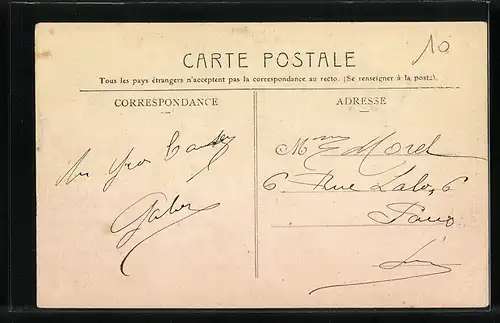 10
CARTE POSTALE
Tous les pays étrangers n'acceptent pas la correspondance au recto. (Se renseigner à la poste).
CORRESPONDANCE
Un gros
ADRESSE
Mme Morel
6 Rue Lalo, 6
Paris